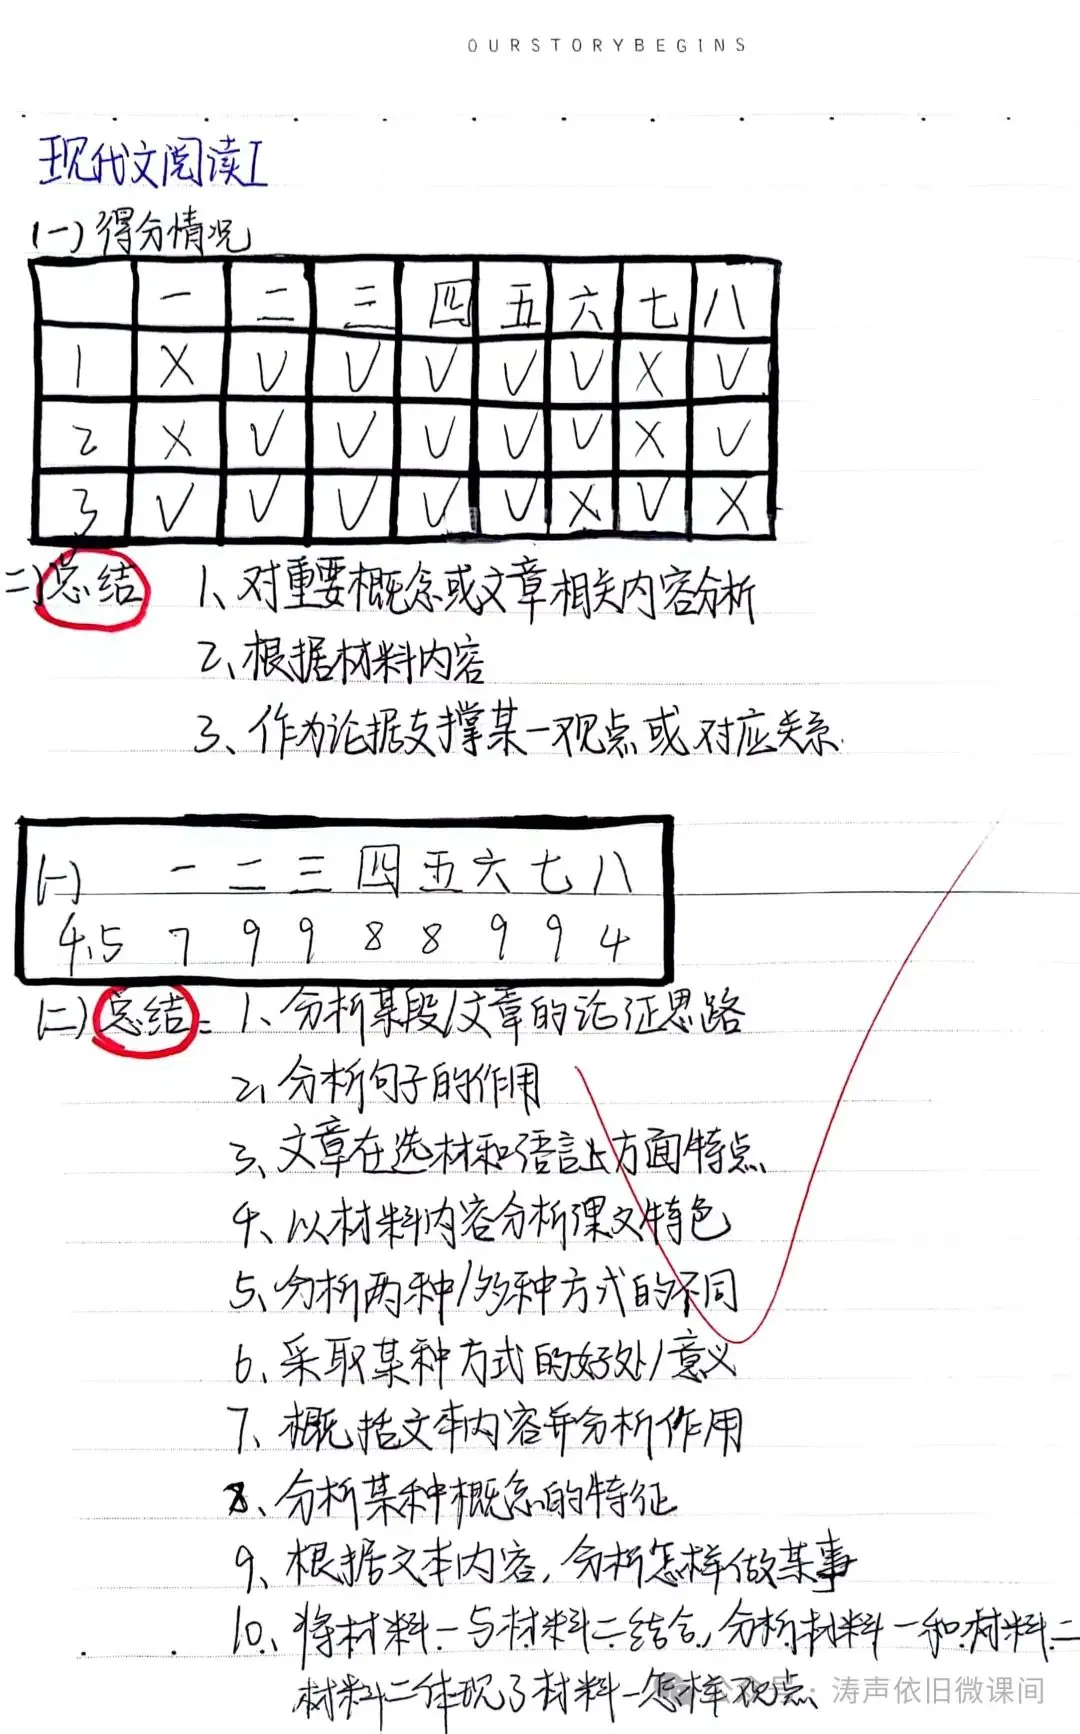 OURSTORYBEGINS
现代文阅读I
(一)得分情况
一 二 三 四 五 六 七 八
1 X V V V V V X V
2 X V V V V V X V
3 V V V V V X V X
二)总结 1、对重要概念或文章相关内容分析
2、根据材料内容
3、作为论据支撑某一观点或对应关系.
(一) 一 二 三 四 五 六 七 八
4、5 7 9 9 8 8 9 9 4
(二)总结: 1、分析某段/文章的论证思路
2、分析句子的作用
3、文章在选材和语言上方面特点
4、以材料内容分析课文特色
5、分析两种/多种方式的不同
6、采取某种方式的好处/意义
7、概括文本内容并分析作用
8、分析某种概念的特征
9、根据文本内容,分析怎样做某事
10、将材料一与材料二结合,分析材料一和材料二
材料二体现了材料一怎样观点
公众号:涛声依旧微课间